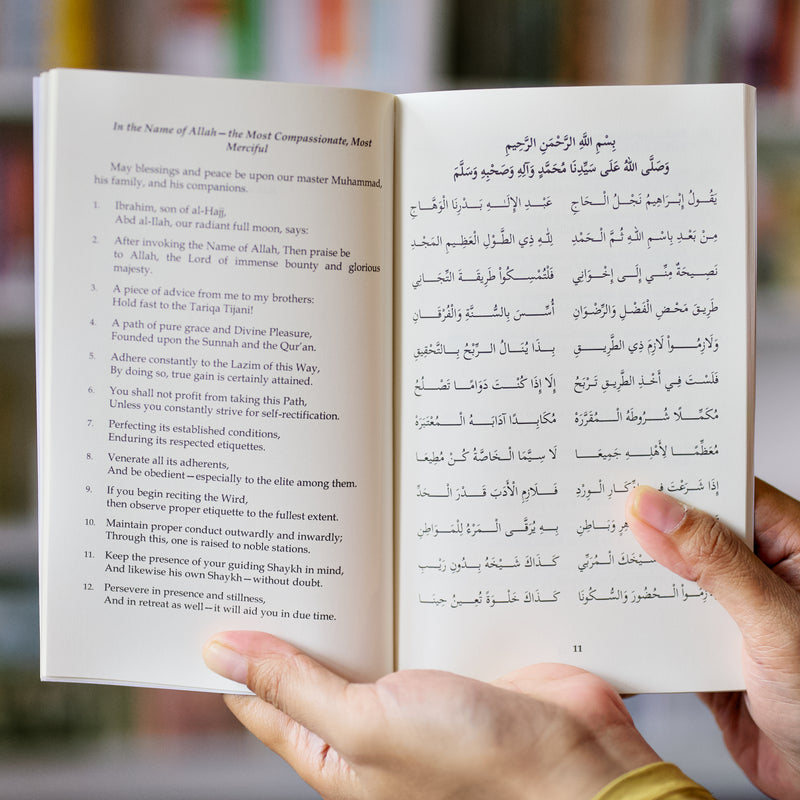 In the Name of Allah—the Most Compassionate, Most
Merciful
May blessings and peace be upon our master Muhammad,
his family, and his companions.
1. Ibrahim, son of al-Hajj,
Abd al-Ilah, our radiant full moon, says:
2. After invoking the Name of Allah, Then praise be
to Allah, the Lord of immense bounty and glorious
majesty.
3. A piece of advice from me to my brothers:
Hold fast to the Tariqa Tijani!
4. A path of pure grace and Divine Pleasure,
Founded upon the Sunnah and the Qur'an.
5. Adhere constantly to the Lazim of this Way,
By doing so, true gain is certainly attained.
6. You shall not profit from taking this Path,
Unless you constantly strive for self-rectification.
7. Perfecting its established conditions,
Enduring its respected etiquettes.
8. Venerate all its adherents,
And be obedient—especially to the elite among them.
9. If you begin reciting the Wird,
then observe proper etiquette to the fullest extent.
10. Maintain proper conduct outwardly and inwardly;
Through this, one is raised to noble stations.
11. Keep the presence of your guiding Shaykh in mind,
And likewise his own Shaykh—without doubt.
12. Persevere in presence and stillness,
And in retreat as well—it will aid you in due time.
بِسْمِ اللَّهِ الرَّحْمَنِ الرَّحِيمِ
وَصَلَّى اللهُ عَلَى سَيِّدِنَا مُحَمَّدٍ وَآلِهِ وَصَحْبِهِ وَسَلَّمَ
يَقُولُ إِبْرَاهِيمُ نَجْلُ الْحَاجِ عَبْدِ الإِلَـٰهِ بَدْرِنَا الْوَهَّاجِ
مِنْ بَعْدِ بِاسْمِ اللهِ ثُمَّ الْحَمْدِ لِلهِ ذِي الطَّوْلِ الْعَظِيمِ الْمَجْدِ
نَصِيحَةٌ مِنِّي إِلَى إِخْوَانِي فَلْتُمْسِكُواْ طَرِيقَةَ التِّجَانِي
طَرِيقَ مَحْضِ الْفَضْلِ وَالرِّضْوَانِ أُسِّسَ بِالسُّنَّةِ وَالْفُرْقَانِ
وَلَازِمُواْ لَازِمَ ذِي الطَّرِيقِ بِذَا يُنَالُ الرِّبْحُ بِالتَّحْقِيقِ
فَلَسْتَ فِي أَخْذِ الطَّرِيقِ تَرْبَحُ إِلَّا إِذَا كُنْتَ دَوَامًا تَصْلُحُ
مُكَمِّلًا شُرُوطَهُ الْمُقَرَّرَهْ مُكَابِدًا آدَابَهُ الْمُعْتَبَرَهْ
مُعَظِّمًا لِأَهْلِهِ جَمِيعَا لَا سِيَّمَا الْخَاصَّةُ كُنْ مُطِيعَا
إِذَا شَرَعْتَ فِي الْوِرْدِ فَلَازِمِ الْأَدَبَ قَدْرَ الْحَدِّ
وَبَاطِنِ بِهِ يُرَقَّى الْمَرْءُ لِلْمَوَاطِنِ
الْمُرَبِّي كَذَاكَ شَيْخَهُ بِدُونِ رَيْبِ
الْحُضُورَ وَالسُّكُونَا كَذَاكَ خَلْوَةً تُعِينُ حِينَا
11